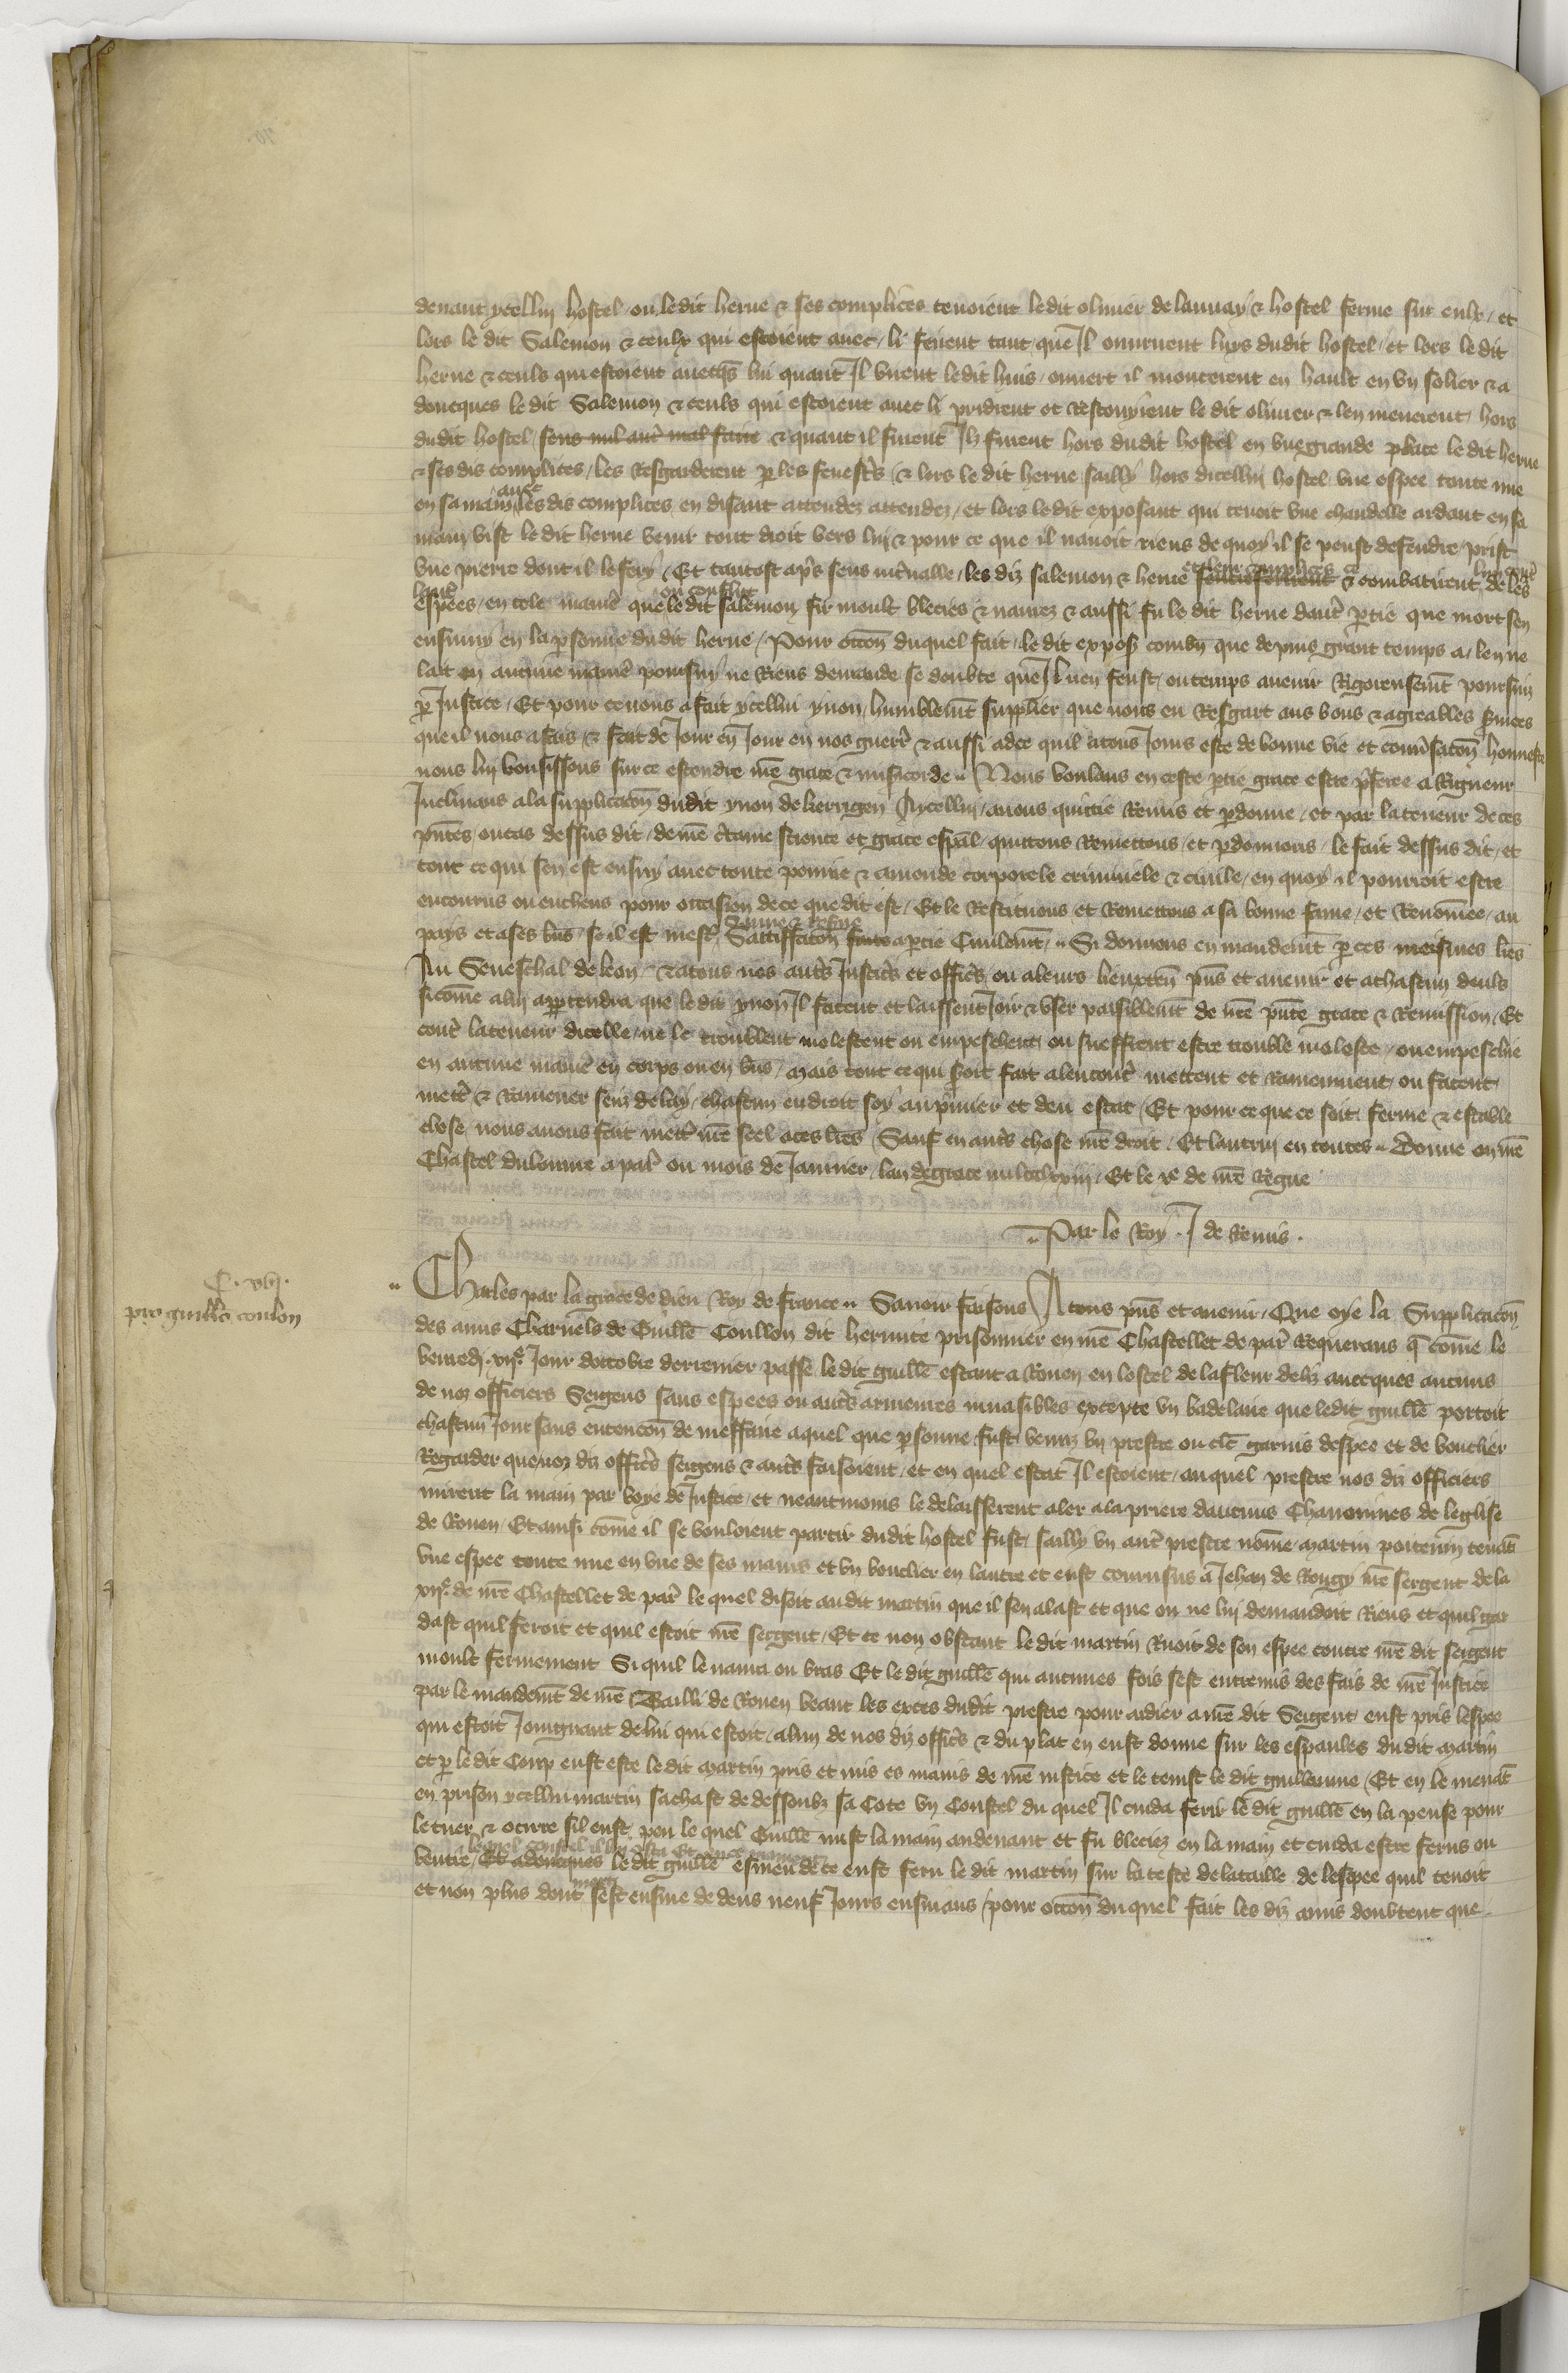 devant ycelluy hostel ou ledit herve & ses complices tenoient ledit olivier de launay & hostel ferme sur eulx / et
lors le dit Salemon & ceulx qui estoient avec li firent tant que Il ouvrirent luys dudit hostel / et lors le dit
herve & ceuls qui estoient avecqs lui quant Il virent ledit huis ouvert il monterent en hault en un solier & a
doncques le dit Salemon & ceuls qui estoient avec li pridrent et Rescouyrent le dit olivier & len menerent hors
dudit hostel / sens nul autre mal faire & quant il furent Ilz furent hors dudit hostel en une grande place le dit herve
& ses dis complices les Resgarderent p les fenestrs & lors le dit herve sailly hors dicelluy hostel une espee toute nue
en sa main avec ses dis complices en disant attendez attendez / et lors ledit exposant qui tenoit une chandelle ardant en sa
main vist le dit herve venir tout droit vers luy & pour ce que il navoit riens de quoy il se peust defendre / prist
une pierre dont il le fery / Et tantost aps sens intvalle / les diz salemon & herve et leurs complices se combatirent de les
espees / en tele manie que ou conflict le dit salemon fu moult bleciés & navrez & aussi fu le dit herve dautr ptie que mort sen
ensuivy en la psonne du dit herve / Pour occon duquel fait / le dit exposs combn que depuis grant temps a / len ne
lait en aucune manie poursuy ne Riens demande se doubte que Il nen feust / ou temps avenir Rigoreusemt poursuiz
p Justice / Et pour ce nous a fait ycellui yvon / humblemt supplier que nous en Resgart aus bons & agreables svices
que il nous a fais & fait de Jour en Jour en nos guerrs & aussi adce quil a tous Jours este de bonne vie et convsacon honneste
nous luy voulsissons sur ce estendre nre grace & misicorde // Nous voulans en ceste ptie grace estre pferee a Rigueur
Inclinans a la supplicacon dudit yvon de kerizgen A ycelluy avons quictie Remis et pdonne / et par la teneur de ces
pntes ou cas dessus dit / de nre ctaine science et grace espal / quictons Remettons / et pdonnons / le fait dessus dit / et
tout ce qui sen est ensuy avec toute poinne & amende corporele criminele & civile / en quoy il pourroit estre
encourus ou encheus pour occasion de ce que dit est / Et le Restituons et Remettons a sa bonne fame / et Renomee / au
pays et a ses bns / se il est mestr Sattiffacon a ptie Civilemt // Si donnons en mandemt p ces meismes lres
Au Seneschal de leon & a tous nos autrs Justicrs et officrs / ou a leurs lieuxten pns et avenir et a chascun deuls
sicome a luy apptendra que le dit yvon Il facent et laissent Joir & user paisiblemt de nre pnte grace & Remission / Et
contr la teneur dicelle / ne le troublent molestent ou empeschent / ou sueffrent estre trouble moleste / ou empeschie
en aucune manie en corps ou en bns / mais tout ce qui soit fait alencontr mettent et Ramennent / ou facent
mettr & Ramener senz delay / chascun endroit soy au pmier et deu estat / Et pour ce que ce soit ferme & estable
chose / nous avons fait mettr nre seel a ces lres / Sauf en autrs chose nre droit / Et lautruy en toutes // Donne en nre
Chastel du louvre a pars ou mois de Janvier / lan de grace / Et le xe de nre Regne
// Par le Roy . J de Remis .
C. vij.
pro guillo coulon
// Charles par la grace de dieu Roy de france // Savoir faisons A tous pns et avenir / Que oye la Supplicacon
des amis Charnels de Guille Coullon dit hermite prisonnier en nre Chastellet de pars Requerans q come le
venredj Jour doctobre derrenier passe le dit guille estant a Rouen en lostel de la fleur deliz avecques aucuns
de noz officiers Sergens sans espees ou autrs armeures invasibles excepte un badelaire que ledit guille portoit
chascun Jour sans entencon de meffaire a quel que psonne fust venuz un prestre ou clc garnis despee et de bouclier
Regarder que noz diz officrs sergens & autrs faisoient / et en quel estat Il estoient / au quel prestre nos diz officiers
mirent la main par voye de Justice / et neantmoins le delaisserent aler a la priere daucuns Chanoinnes de leglise
de Rouen / Et ainsi come il se vouloient partir dudit hostel fust sailly un autr prestre nome martin poitevin tenat
une espee toute nue en une de ses mains et un bouclier en lautre et eust couru sus a Jehan de Rougy nre sergent de la
xije de nre Chastellet de pars le quel disoit au dit martin que il sen alast et que on ne lui demandoit Riens et quil gar
dast quil feroit et quil estoit nre sergent / Et ce non obstant le dit martin Ruoit de son espee contre nre dit sergent
moult fermement Si quil le navra ou bras Et le dit guille qui aucunes fois sest entremis des fais de nre Justice
par le mandemt de nre Bailli de Rouen veant les exces dudit prestre pour aidier a nre dit Sergent eust pris lespee
qui estoit Joingnant de lui qui estoit a lun de nos diz officrs & du plat en eust donne sur les espaules du dit martin
et p le dit Coup eust este le dit martin pris et mis es mains de nre iustice et le tenist le dit guillaume / Et en le menat
en prison ycellui martin sachast de dessoubz sa Cote un Coustel du quel Il cuida ferir le dit guille en la pense pour
le tuer & ocirre sil eust peu le quel Guille mist la main au devant et fu bleciez en la main et cuida estre ferus ou
ventre / Et adoncques le dit guille esmeu de ce eust feru le dit martin sur la teste de la taille de lespee quil tenoit
et non plus dont mort sest ensuie de deus neuf Jours ensuians / pour occon du quel fait les diz amis doubtent que